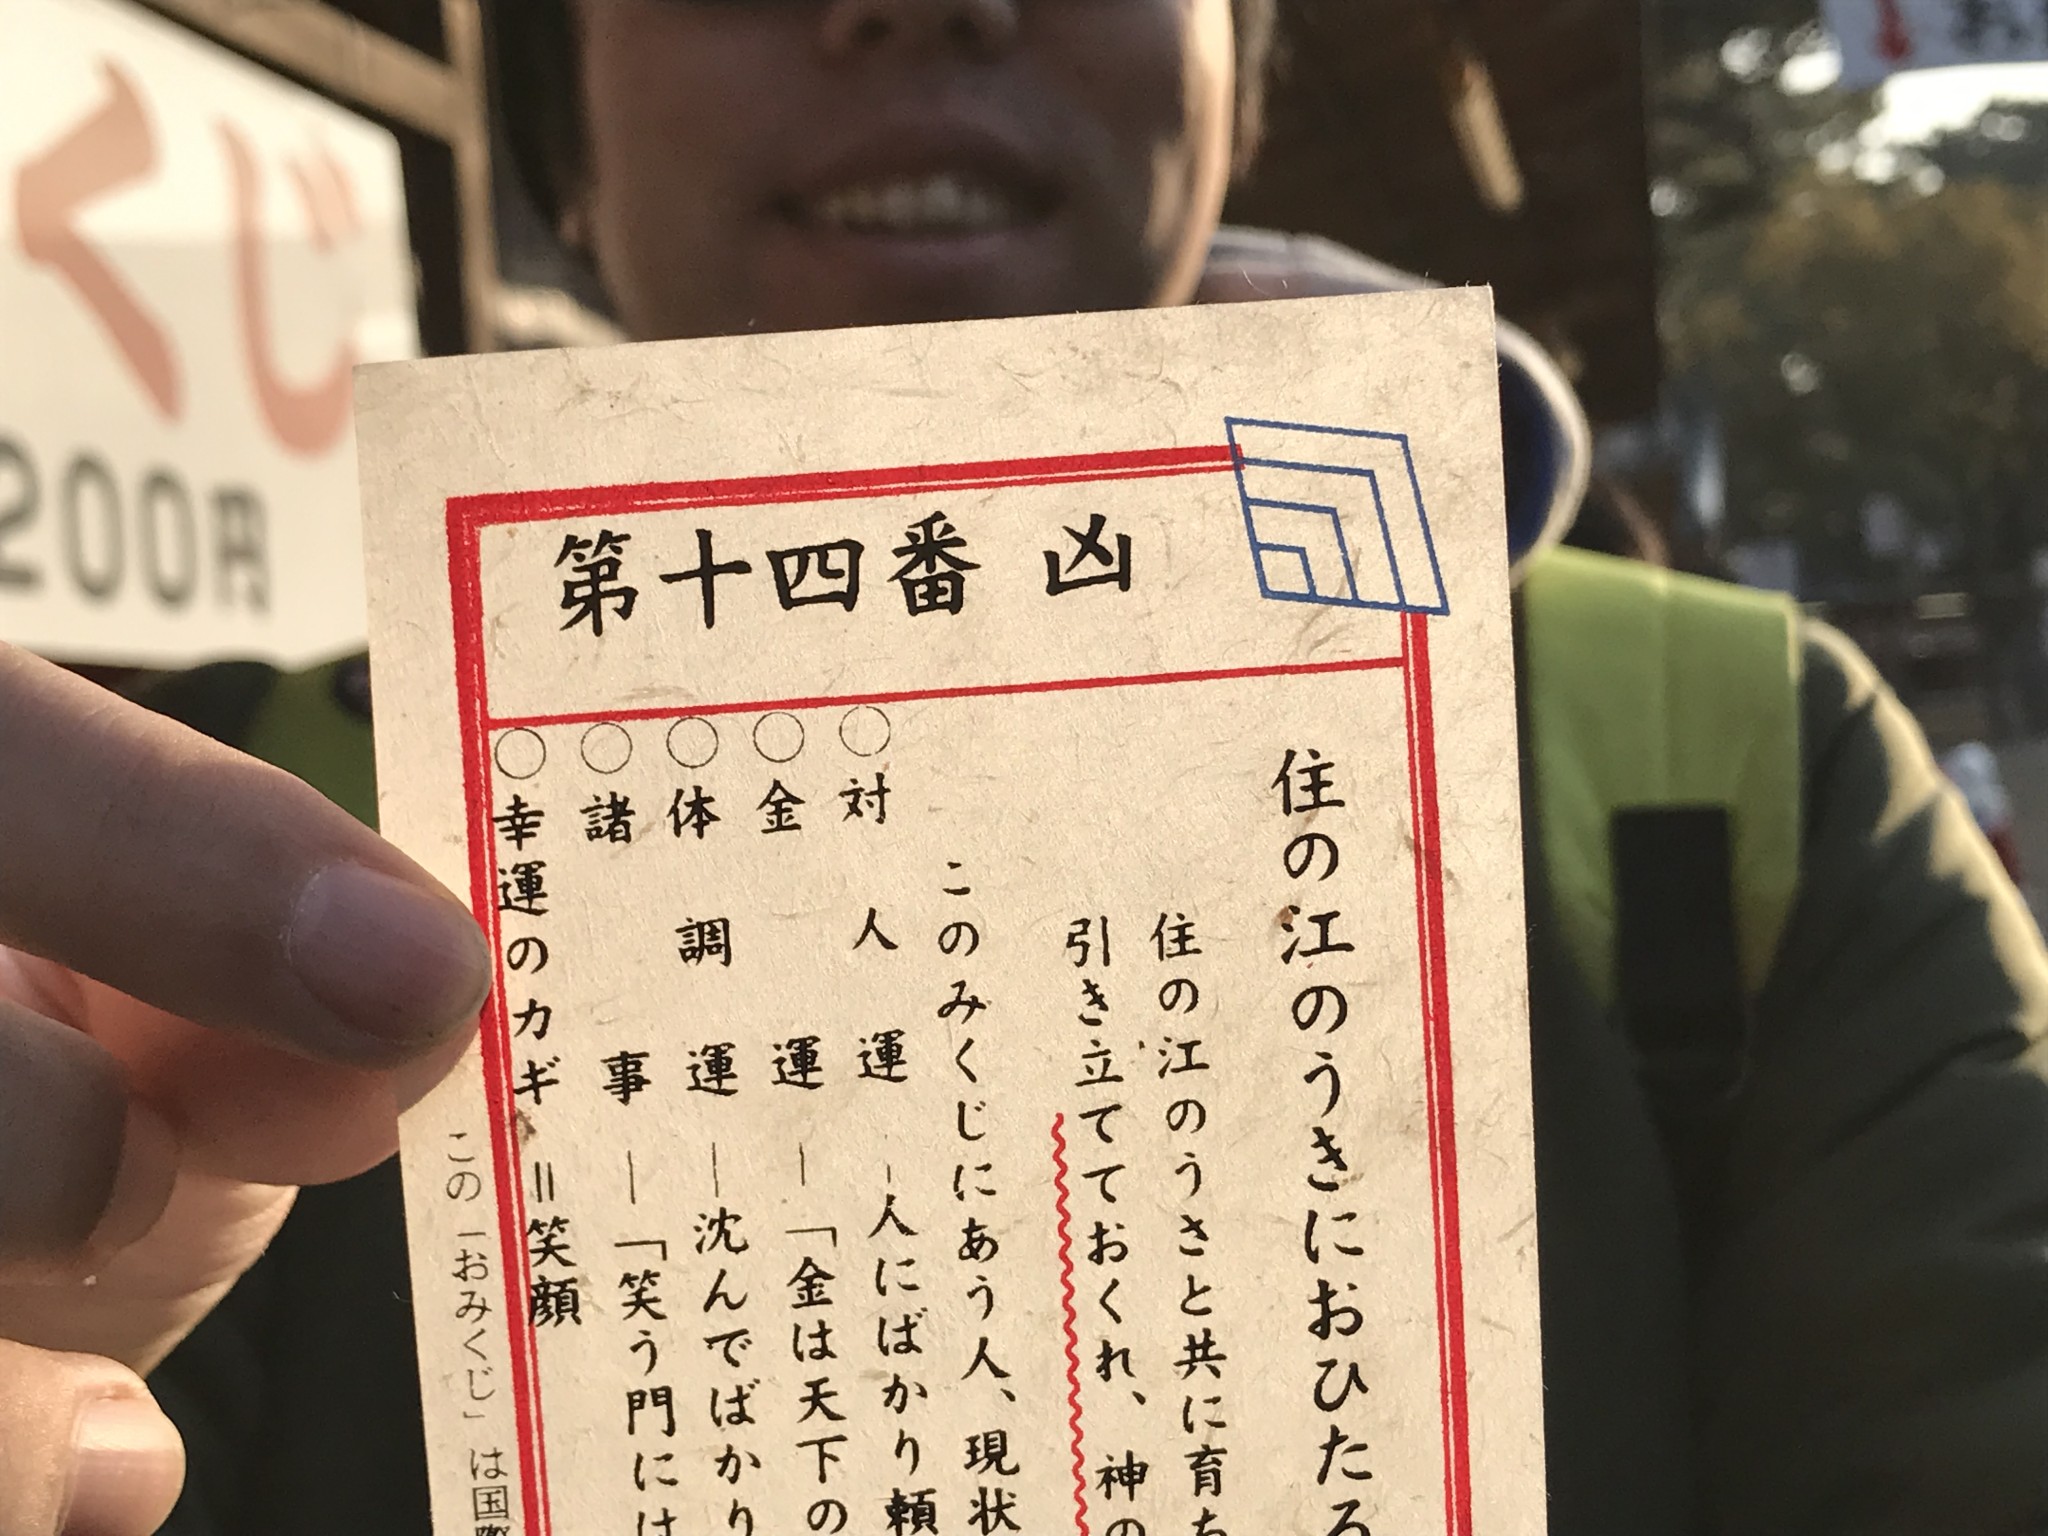 くじ
200円
第十四番 凶
住の江のうきにおひたる
住の江のうさと共に育ち
引き立てておくれ、神の
このみくじにあう人、現状
○対人運―人にばかり頼
○金運―「金は天下の
○体調運―沈んでばかり
○諸事―「笑う門には
○幸運のカギ=笑顔
この「おみくじ」は国際